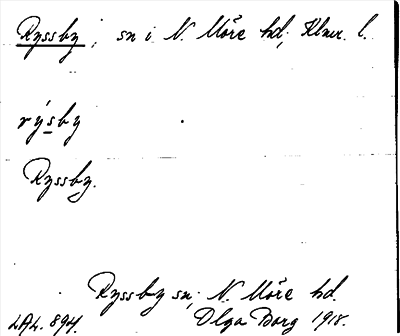 Ryssby, sn i N. Möre hd, Klmr. l.
rýsby
Ryssby.
Ryssby sn, N. Möre hd.
LAL. 894. Olga Borg 1918.